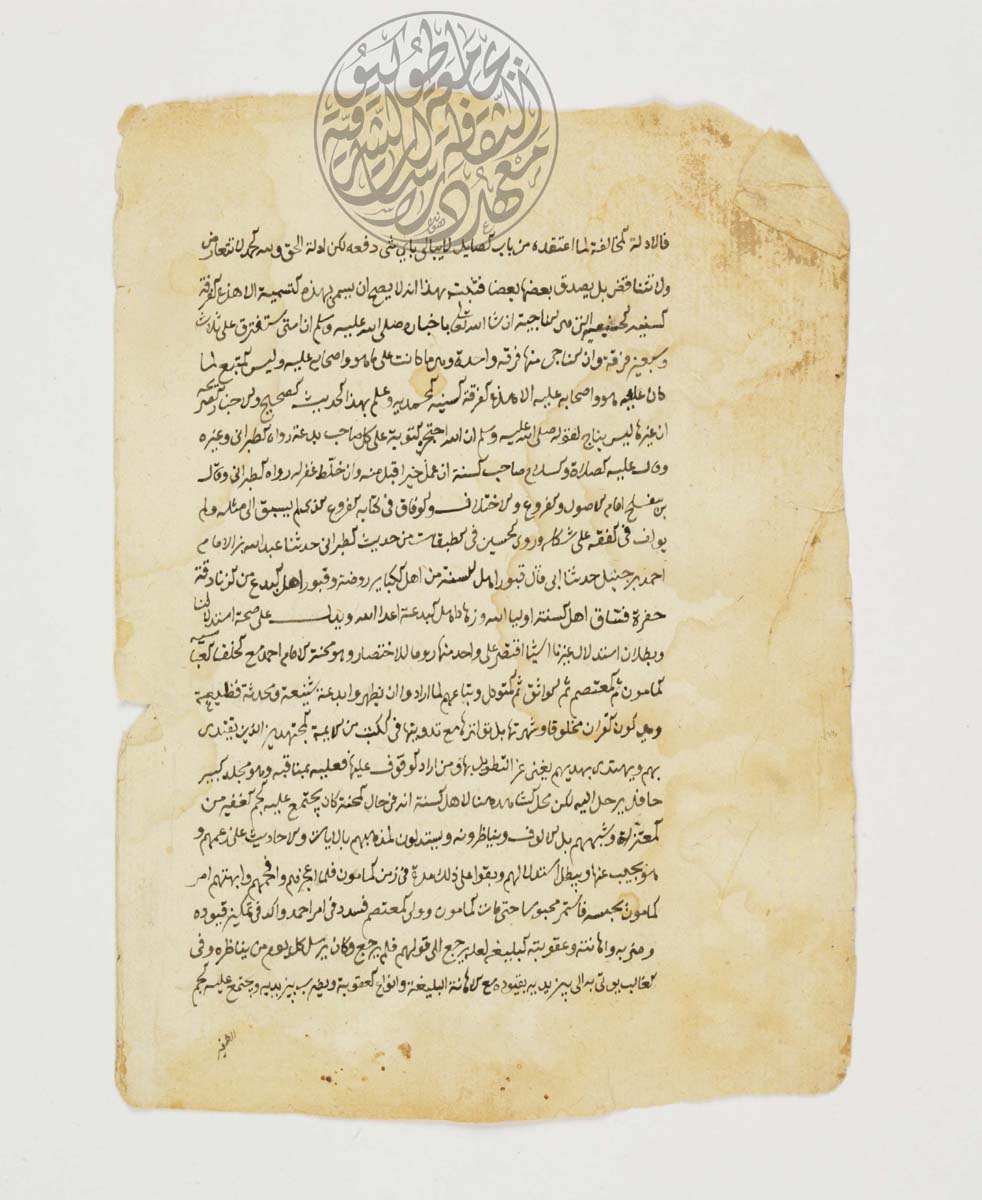 فالادلة المخالفة لما اعتقده من باب الصايل لايبالي باي شي دفعه لكن ادلة الحق ولله الحمد لا تتعارض
ولا تتناقض بل يصدق بعضها بعضا فثبت بهذا انه لا يصح ان يسمى بهذه التسمية الا هذه الفرقة
السنية الناجية ان شا الله تعالى باخباره صلى الله عليه وسلم ان امتى ستفترق على ثلاث
وسبعين فرقة وان الناجي منها فرقة واحدة وهي ما كانت على ما هو واصحابه عليه وليس المتبع لما
كان عليه هو واصحابه عليه الا هذه الفرقة السنية المحمدية وعلم بهذا الحديث الصحيح
ان غيرها ليس بناج لقوله صلى الله عليه وسلم ان الله احتجر التوبة على كل صاحب بدعة رواه الطبراني وغيره
وقال عليه الصلاة والسلام صاحب السنة ان عمل خيرا قبل منه وان خلط غفر له رواه الطبراني وقال
بن مفلح امام الاصول والفروع والاختلاف والوفاق في كتابه الفروع الذي لم يسبق الى مثله ولم
يولف في الفقه على شكله وروى الحسين في الطبقات من حديث الطبراني حدثنا عبد الله بن الامام
احمد بن حنبل حدثنا ابي قال قبور اهل السنة من اهل الكباير روضة وقبور اهل البدع من الزنادقة
حفرة فساق اهل السنة اوليا الله وزهاد اهل البدعة اعدا الله ويدل على صحة استدلالنا
وبطلان استدلال غيرنا اشيا اقتصر على واحد منها روما للاختصار وهو محنة الامام احمد مع الخلفا العباسية
المامون ثم المعتصم ثم الواثق ثم المتوكل وتباعهم لما ارادوا ان يظهروا بدعة شنيعة ومحدثة فظيعة
وهي كون القران مخلوقا وشهرتها بل تواترها مع تدوينها في الكتب من الايمة المجتهدين الذين يقتدى
بهم ويهتدى بهديهم يغنى عن التطويل بها ومن اراد الوقوف عليها فعليه بمناقبه وهو مجلد كبير
حافل يرحل اليه لكن محل هنا لاهل السنة انه في حال المحنة كان يجتمع عليه الجم الغفير من
المعتزلة وشبههم بل الالوف ويناظرونه ويستدلون لمذهبهم بالايات والاحاديث على زعمهم و
هو يجيب عنها ويبطل استدلالهم وبقوا على ذلك مدة في زمن المامون فلما اعجزهم وافحمهم وابهتهم امر
المامون بحبسه فاستمر محبوسا حتى مات المامون وولى المعتصم فسدد في امر احمد واكد في تمكين قيوده
وضربه واهانته وعقوبته البليغة لعله يرجع الى قولهم فلم يرجع وكان يرسل كل يوم من يناظره وفي
الغالب يوتى به الى بين يديه بقيوده مع الاهانة البليغة وانواع العقوبة ويضرب بين يديه ويجتمع عليه الجم